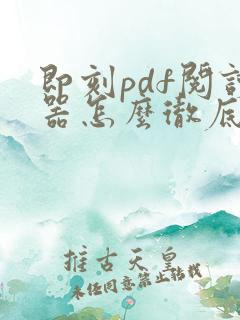 即刻pdf閱
器怎麼徹底
推古天皇
未經同意禁止轉載